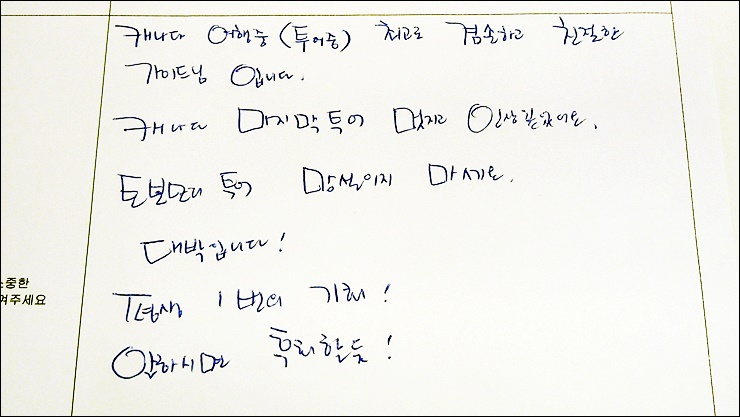 캐나다 여행중 (투어중) 최고로 겸손하고 친절한
가이드님 입니다.
캐나다 마지막 투어 멋지고 인상깊었어요.
토보모리 투어 망설이지 마세요.
대박입니다!
평생 1번의 기회!
안하시면 후회할듯!
소중한
여주세요